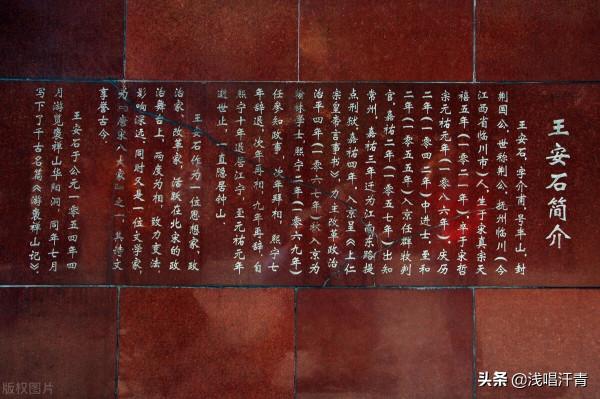 王安石简介
王安石，字介甫，号半山，封
荆国公，世称荆公，抚州临川（今
江西省临川市）人，生于宋真宗天
禧五年（一〇二一年），卒于宋哲
宗元祐元年（一〇八六年）。庆历
二年（一〇四二年）中进士，至和
二年（一〇五五年）入京任群牧判
官，嘉祐二年（一〇五七年）出知
常州，嘉祐三年迁为江南东路提
点刑狱，嘉祐四年，入京呈《上仁
宗皇帝言事书》，力主改革政治，
治平四年（一〇六七年）秋入京为
翰林学士，熙宁二年（一〇六九年）
任参知政事，次年拜相，熙宁七
年辞退，次年再相，九年再辞，自
熙宁十年退居江宁，至元祐元年
逝世止，一直隐居钟山。
王安石作为一位思想家、政
治家、改革家，活跃在北宋的政
治舞台上，两度为相，致力变法，
影响深远，同时又是一位文学家，
为"唐宋八大家"之一，其诗文
享誉古今。
王安石于公元一〇五四年四
月游览褒禅山华阳洞，同年七月
写下了千古名篇《游褒禅山记》。
版权图片
头条 @浅唱汗青